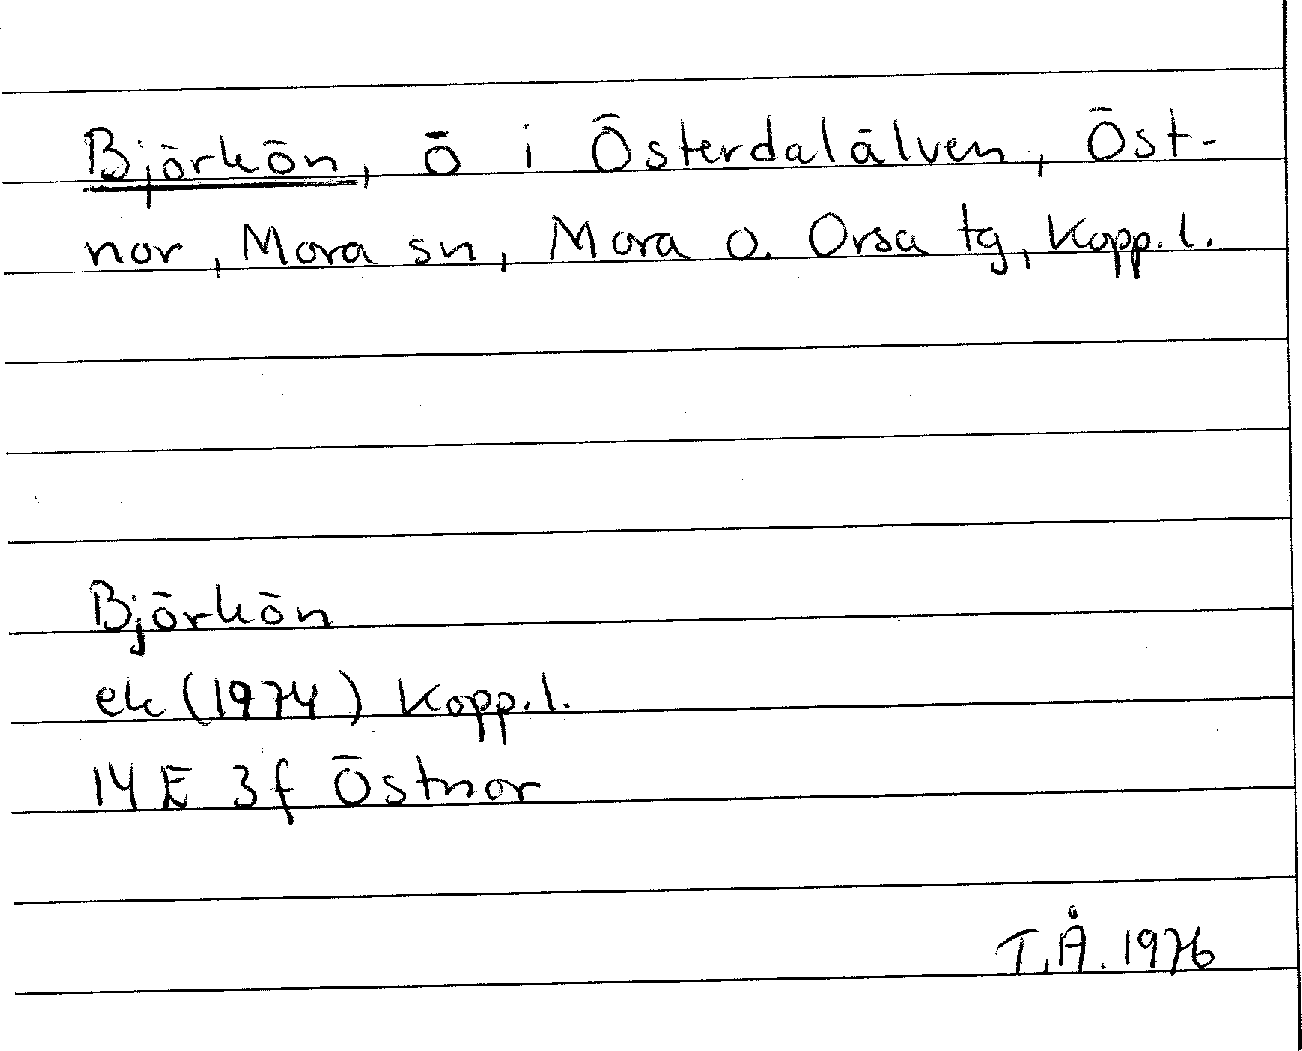 Björkön, ö i Österdalälven, Öst-
nor, Mora sn, Mora o. Orsa tg, Kopp. l.
Björkön
ek (1974) Kopp. l.
14 E 3f Östnor
T.Å. 1976